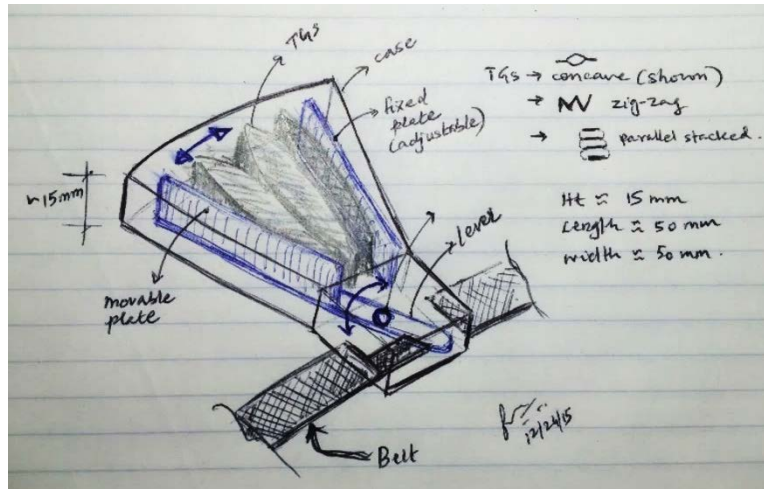 TGs
case
fixed
plate
(adjustable)
~15mm
movable
plate
lever
Belt
TGs → concave (shown)
→ zig-zag
→ parallel stacked.
Ht ≈ 15 mm
Length ≈ 50 mm
width ≈ 50 mm.
12/24/15